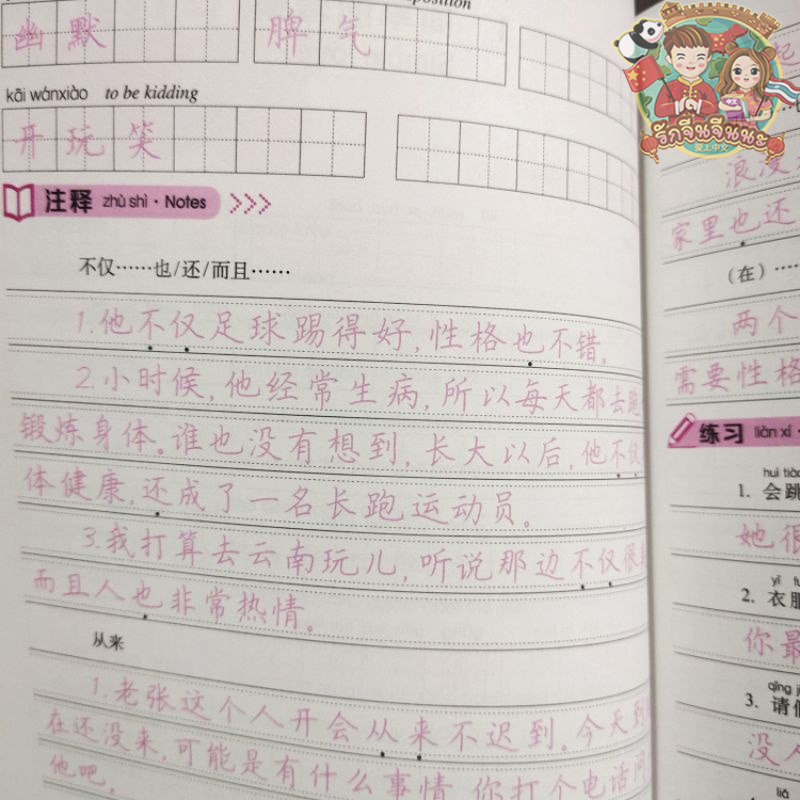 position
幽默 脾气
kāi wánxiào to be kidding
开玩笑
注释 zhù shì · Notes
不仅……也/还/而且……
1.他不仅足球踢得好,性格也不错。
2.小时候,他经常生病,所以每天都去跑
锻炼身体。谁也没有想到,长大以后,他不仅
体健康,还成了一名长跑运动员。
3.我打算去云南玩儿,听说那边不仅很
而且人也非常热情。
从来
1.老张这个人开会从来不迟到。今天到
在还没来,可能是有什么事情 你打个电话问
他吧。
รักจีนจีนนะ
爱上中文
起
浪漫
家里也还
(在)……
两个
需要性格
练习 liàn xí
huì tiào
1. 会跳
她很
yī fu
2. 衣服
你最
qǐng
3. 请
没人